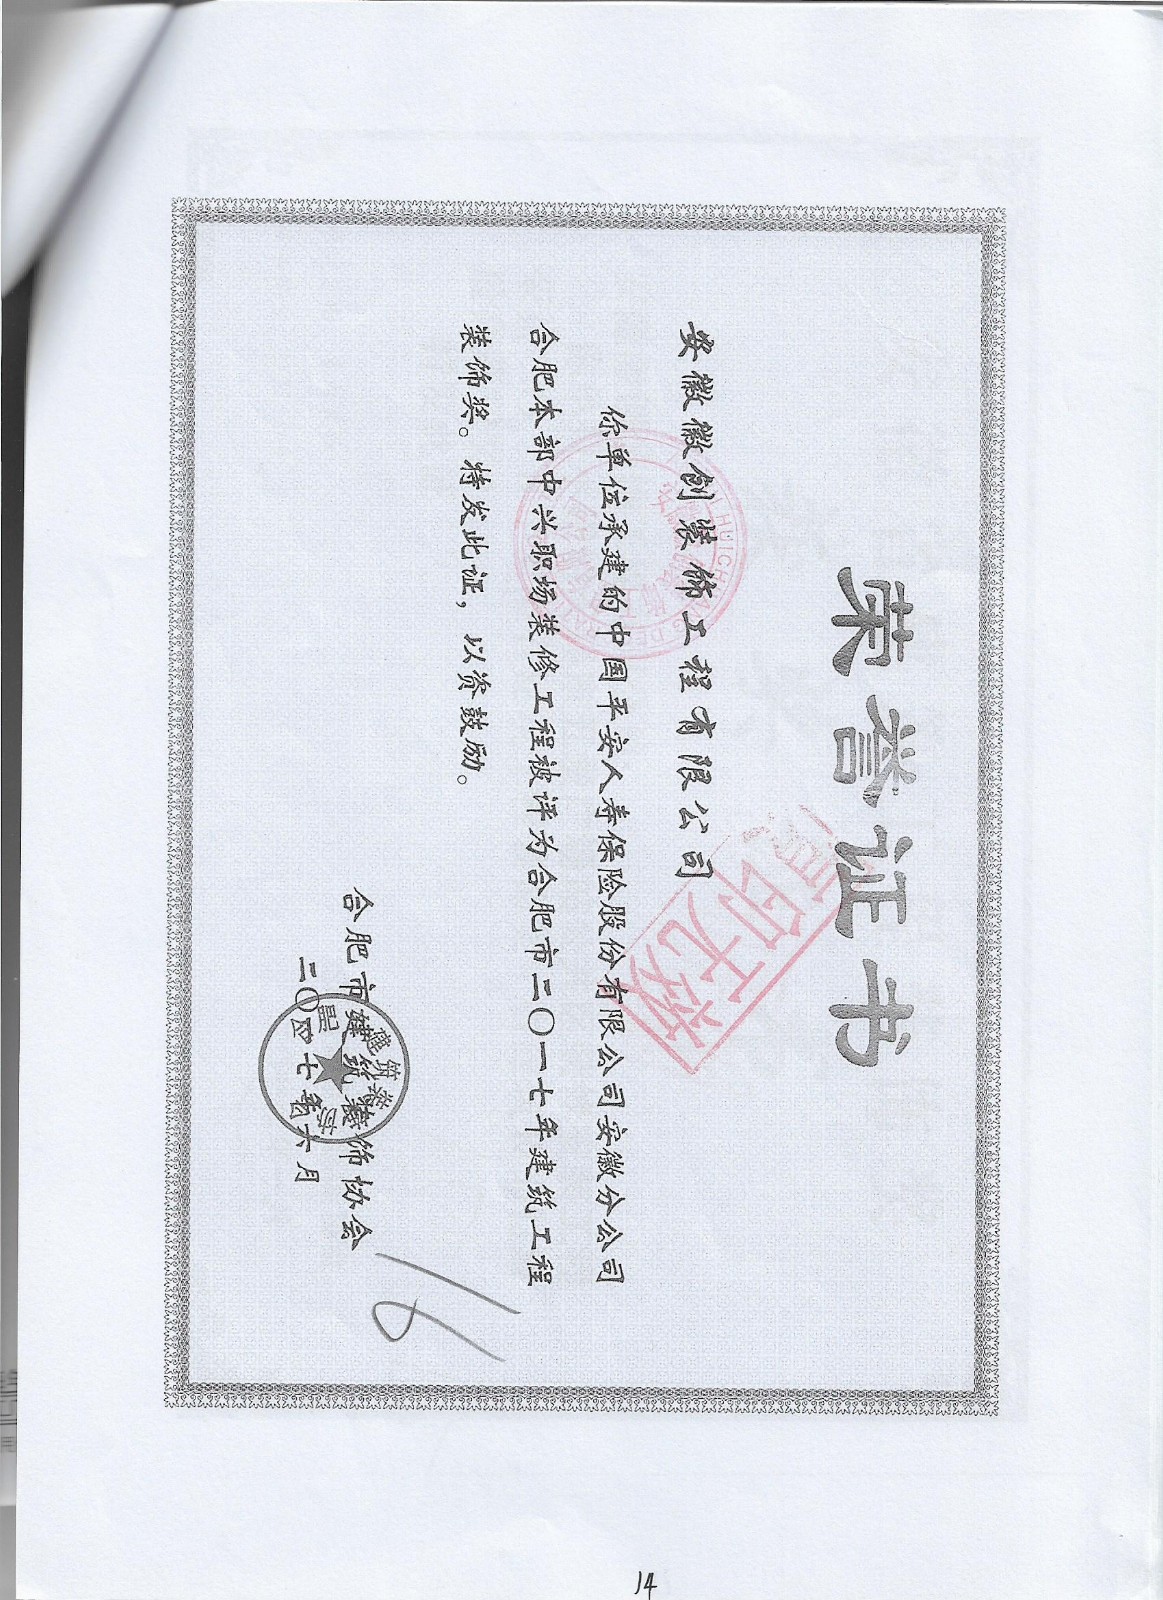 荣誉证书
安徽徽创装饰工程有限公司
你单位承建的中国平安人寿保险股份有限公司安徽分公司
合肥本部中兴职场装修工程被评为合肥市二〇一七年建筑工程
装饰奖。特发此证，以资鼓励。
合肥市建筑装饰协会
二〇一七年六月
复印无效
16
14